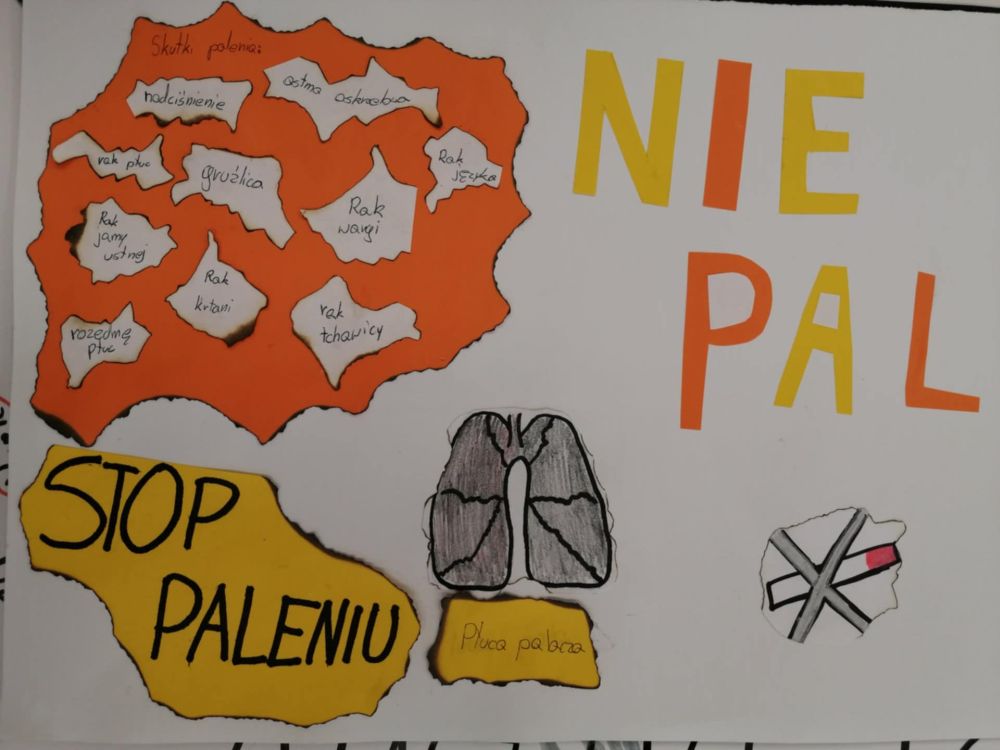 Skutki palenia:
nadciśnienie
astma oskrzelowa
rak płuc
gruźlica
Rak
języka
Rak
wargi
Rak
jamy
ustnej
Rak
krtani
rozedmę
płuc
rak
tchawicy
NIE
PAL
STOP
PALENIU
Płuca palacza